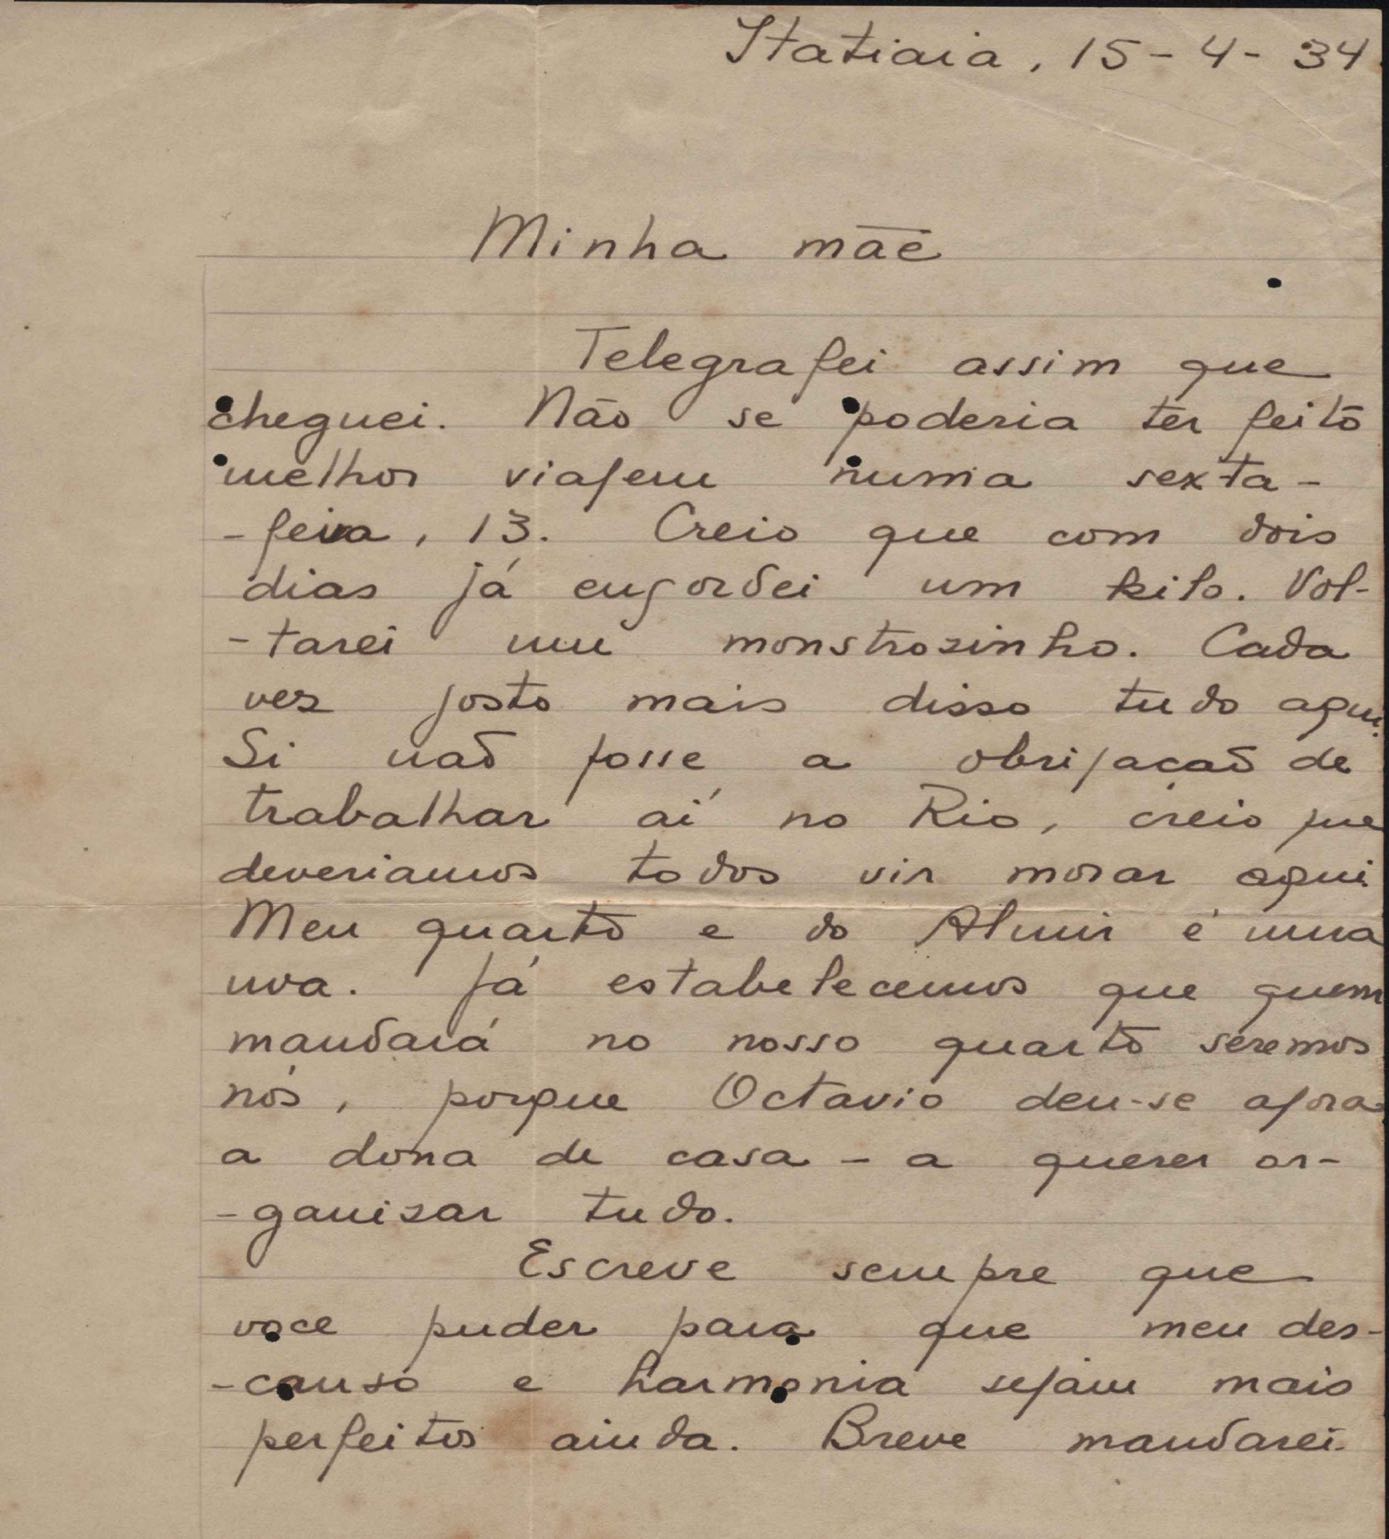 Itatiaia, 15-4-34
Minha mãe
Telegrafei assim que
cheguei. Não se poderia ter feito
melhor viagem numa sexta-
-feira, 13. Creio que com dois
dias já engordei um kilo. Vol-
-tarei um monstrozinho. Cada
vez gosto mais disso tudo aqui.
Si não fosse a obrigação de
trabalhar aí no Rio, creio que
deveriamos todos vir morar aqui
Meu quarto e do Almir é uma
uva. Já estabelecemos que quem
mandará no nosso quarto seremos
nós, porque Octavio deu-se agora
a dona de casa - a querer or-
-ganizar tudo.
Escreve sempre que
voce puder para que meu des-
-canso e harmonia sejam mais
perfeitos ainda. Breve mandarei